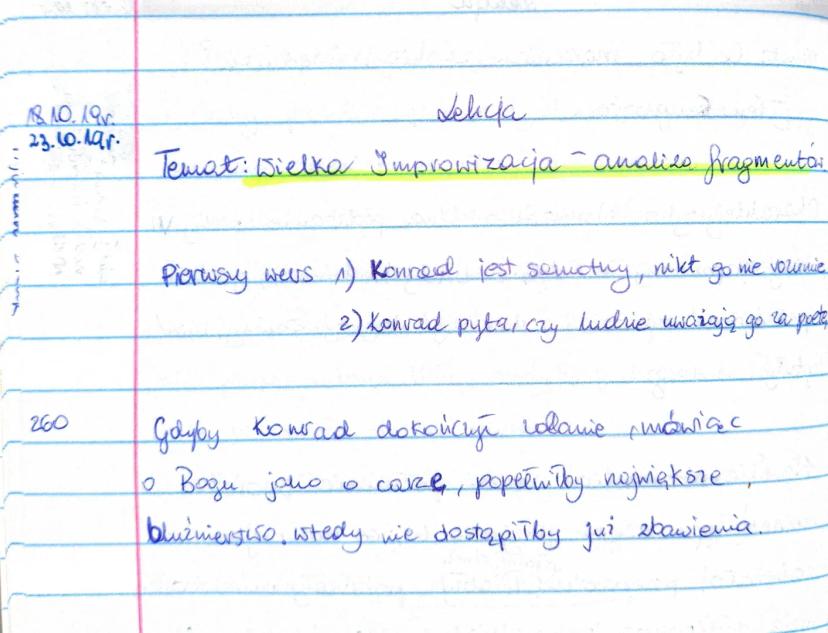 18.10.19r.
23.10.19r.
Lekcja
Temat: Wielka Improwizacja - analiza fragmentów
Pierwszy wers 1) Konrad jest samotny, nikt go nie rozumie
2) Konrad pyta, czy ludzie uważają go za poetę
260
Gdyby Konrad dokończył zdanie, mówiąc
o Bogu jako o carze, popełniłby największe
bluźnierstwo. wtedy nie dostąpiłby już zbawienia.